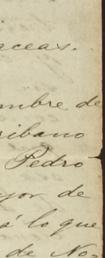 aceas.
mbre de
ribano
Pedro
yor de
á lo que
de No-